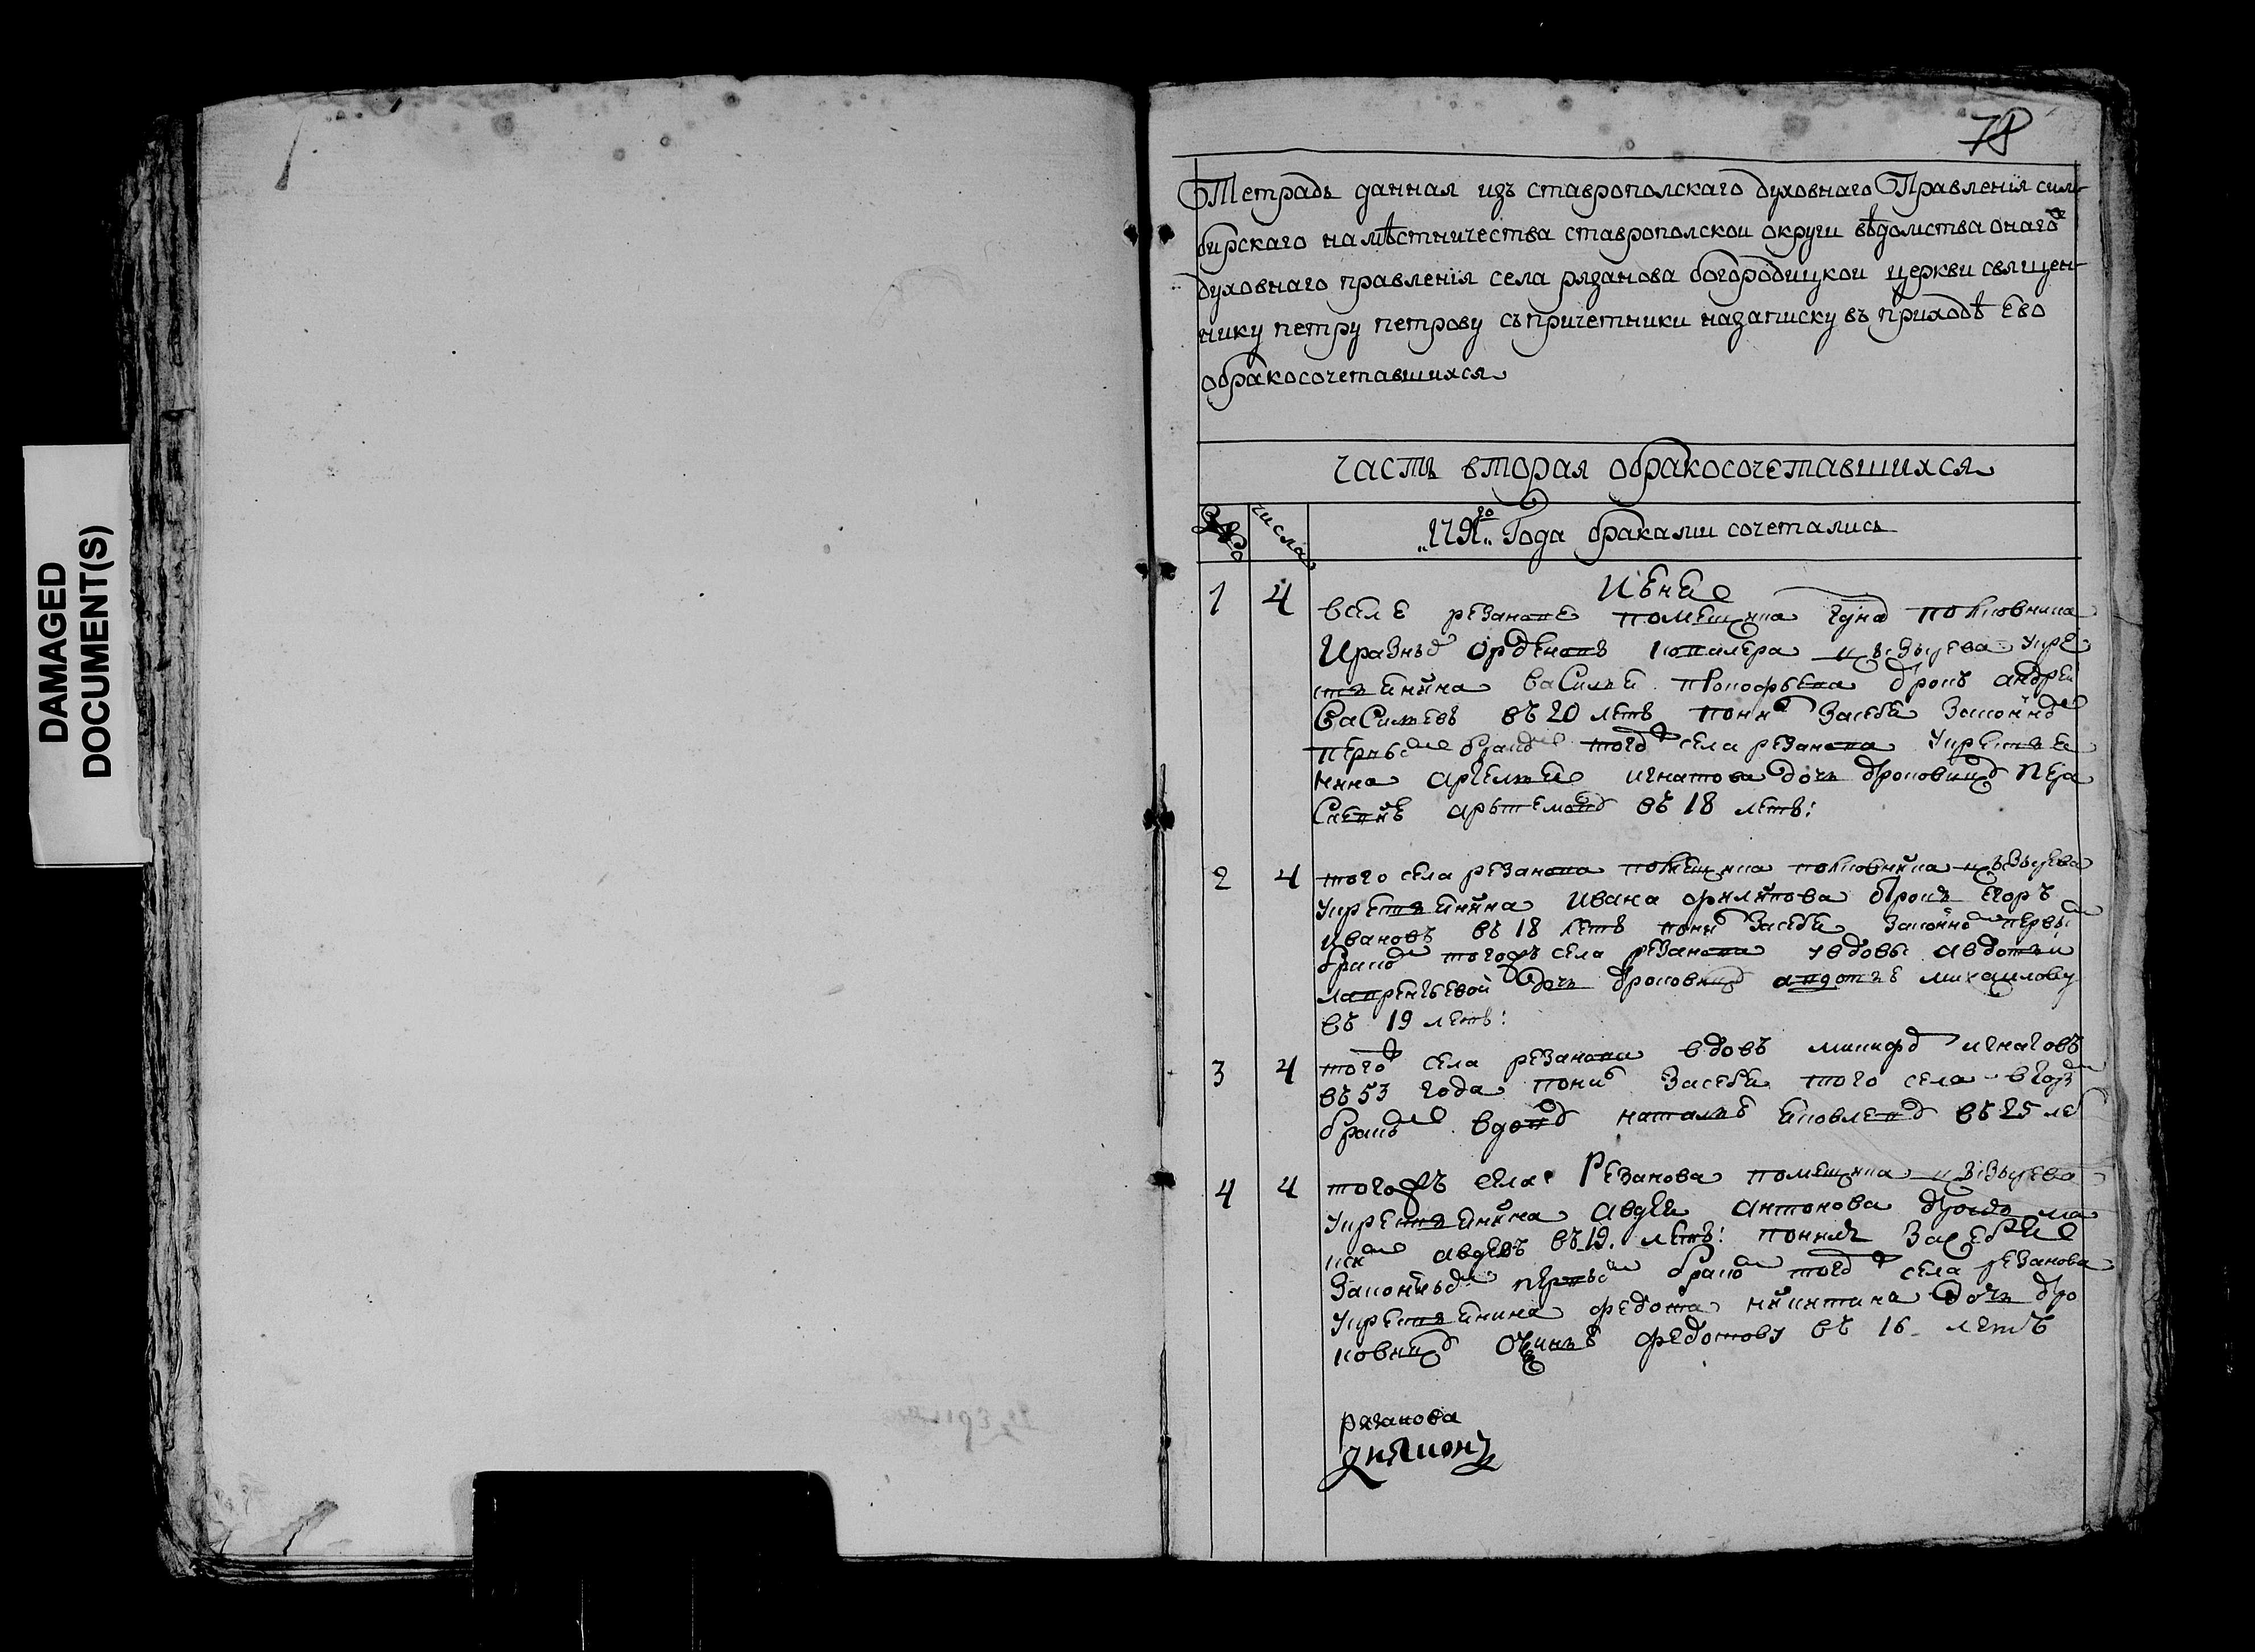 DAMAGED
DOCUMENT(S)
78
Тетрадь данная изъ ставрополскаго духовнаго Правленія сим-
бирскаго намѣстничества ставрополской округи вѣдомства онаго
духовнаго правленія села рязанова богородицкой церкви священ-
нику петру петрову съ причетники на записку въ приходѣ ево
обракосочетавшихся
часть вторая обракосочетавшихся
числа
Года браками сочетались
1 4
в селе резанове помещика полковника
и разныхъ орденовъ кавалера кре
стьянина василья прокофьева отрокъ андрей
васильевъ въ 20 летъ понялъ за себя законнымъ
первымъ бракомъ того села резанова крестьяни
нина игнатова дочь отроковицу
въ 18 летъ:
2 4 того села резанова помещика полковника
крестьянина ивана филипова отрокъ егоръ
ивановъ въ 18 летъ понялъ за себя законно первымъ
бракомъ тогожъ села резанова у вдовы авдотьи
лаврентьевой дочь отроковицу авдотью михаилову
въ 19 летъ:
3 4 того села резанова вдовъ игнатовъ
въ 53 года понялъ за себя того села вторымъ
бракомъ вдову наталью яковлеву въ 25 ле
4 4 тогожъ села Резанова помещика
крестьянина авдея антонова отрокъ ма
авдеевъ въ 19. летъ: понялъ за себя
законнымъ первымъ бракомъ того села резанова
крестьянина федота никитина дочь отро
ковицу федотову въ 16 летъ
рязанова